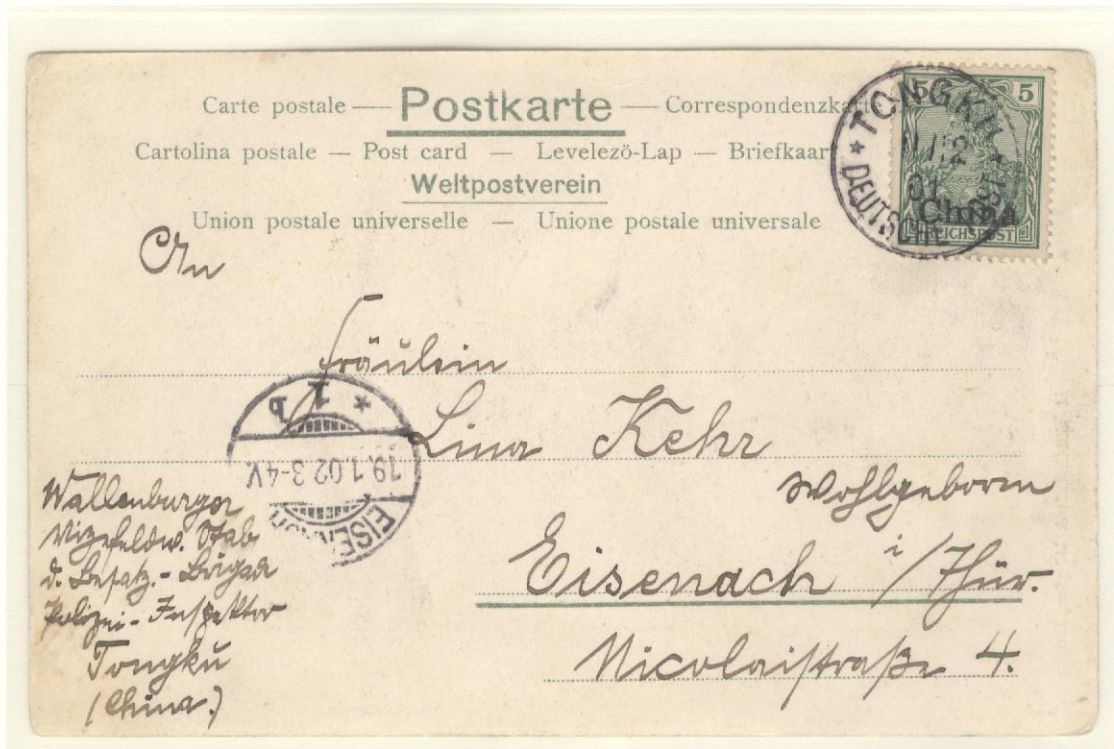 Carte postale — Postkarte — Correspondenzkarte
Cartolina postale — Post card — Levelező-Lap — Briefkaart
Weltpostverein
Union postale universelle — Unione postale universale
5 5
China
REICHSPOST
TONGKU
01
DEUTSCHE POST
An
Fräulein
Lina Kehr
Wohlgeboren
Eisenach i/Thür.
Nicolaistraße 4.
* 1 b
19.1.02 3-4V.
EISENACH
Wallenburger
Vizefeldw. Stab
d. Besatz.-Brigade
Polizei-Inspektor
Tongku
(China.)